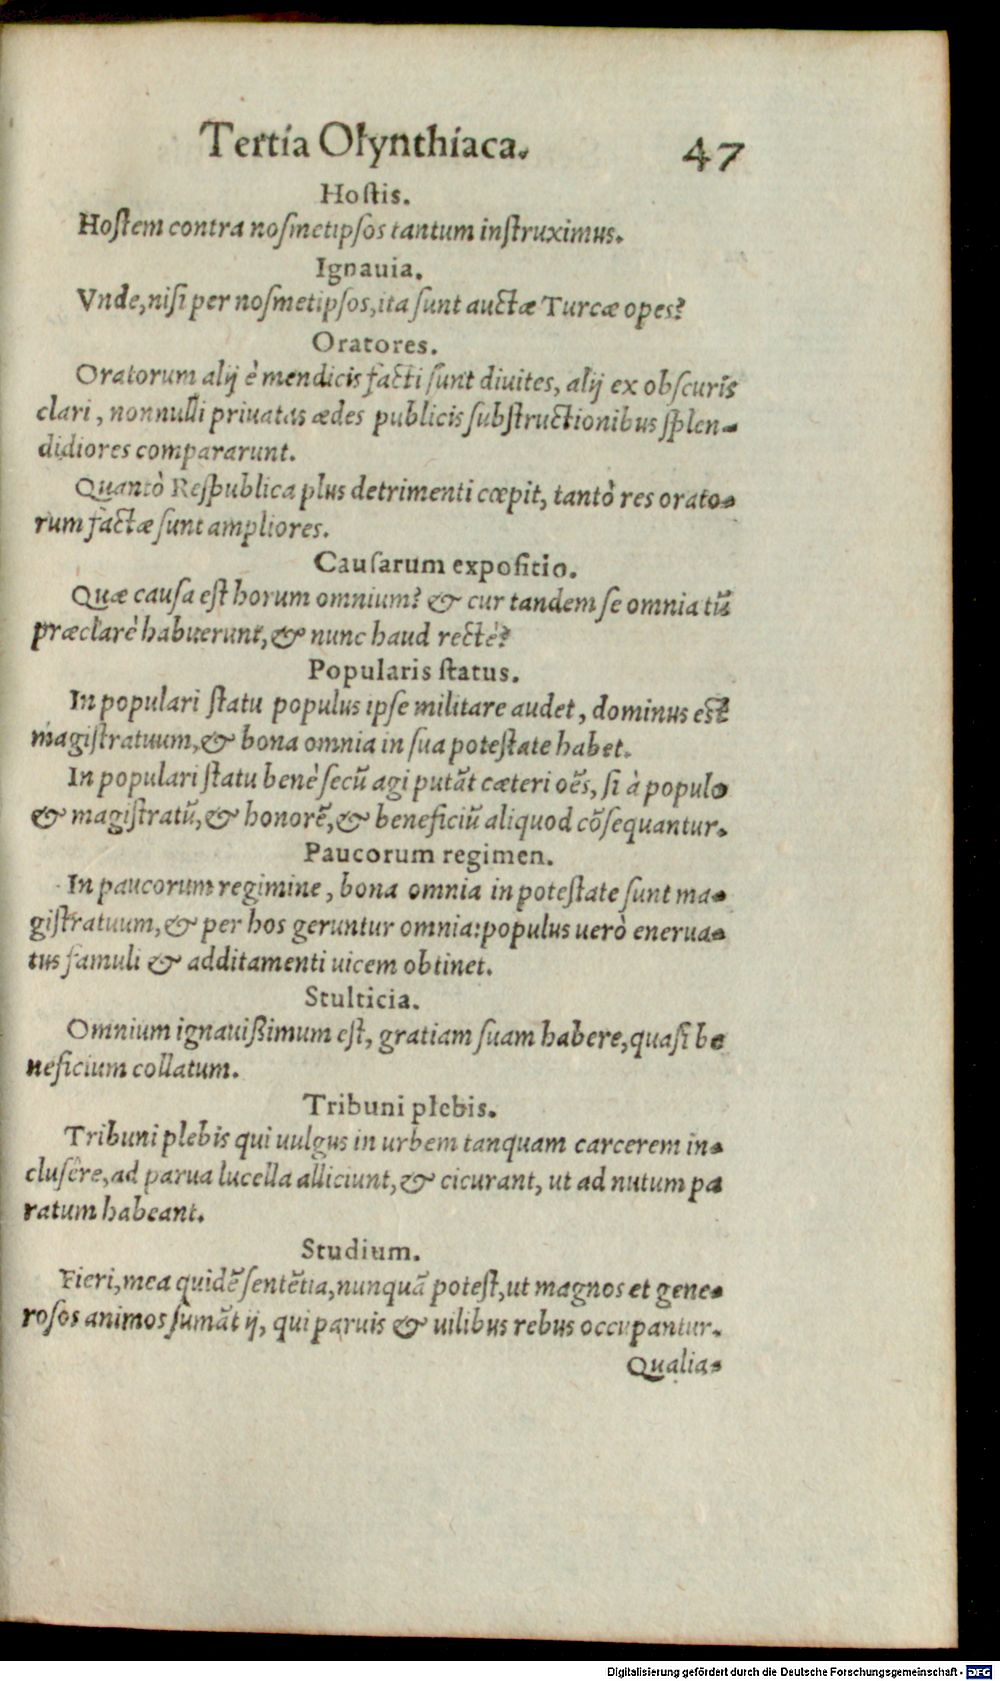 Tertia Olynthiaca. 47
Hostis.
Hostem contra nosmetipsos tantum instruximus.
Ignauia.
Vnde, nisi per nosmetipsos, ita sunt auctæ Turcæ opes?
Oratores.
Oratorum alij è mendicis facti sunt diuites, alij ex obscuris
clari, nonnulli priuatas ædes publicis substructionibus splen-
didiores compararunt.
Quantò Respublica plus detrimenti cœpit, tantò res orato-
rum factæ sunt ampliores.
Causarum expositio.
Quæ causa est horum omnium? & cur tandem se omnia tũ
præclarè habuerunt, & nunc haud rectè?
Popularis status.
In populari statu populus ipse militare audet, dominus est
magistratuum, & bona omnia in sua potestate habet.
In populari statu benè secũ agi putãt cæteri oẽs, si à populo
& magistratũ, & honorẽ, & beneficiũ aliquod cõsequantur.
Paucorum regimen.
In paucorum regimine, bona omnia in potestate sunt ma-
gistratuum, & per hos geruntur omnia: populus uerò enerua-
tus famuli & additamenti uicem obtinet.
Stulticia.
Omnium ignauißimum est, gratiam suam habere, quasi be
neficium collatum.
Tribuni plebis.
Tribuni plebis qui uulgus in urbem tanquam carcerem in-
clusêre, ad parua lucella alliciunt, & cicurant, ut ad nutum pa
ratum habeant.
Studium.
Fieri, mea quidẽ sentẽtia, nunquã potest, ut magnos et gene-
rosos animos sumãt ij, qui paruis & uilibus rebus occupantur.
Qualia-
Digitalisierung gefördert durch die Deutsche Forschungsgemeinschaft - DFG